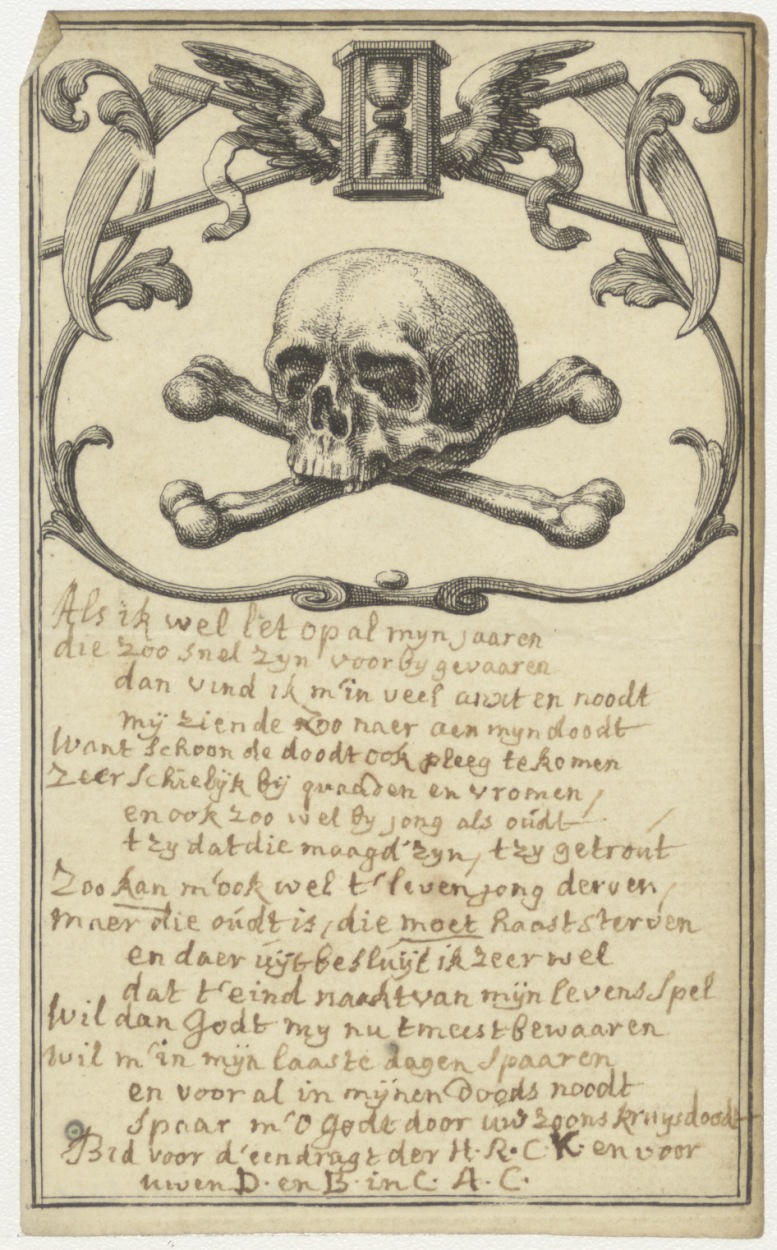 Als ik wel let op al myn jaaren
die zoo snel zyn voorby gevaaren
dan vind ik m'in veel anxt en noodt
mÿ ziende zoo naer aen myn doodt
Want schoon de doodt ook pleeg te komen
Zeer schielÿk bÿ quaaden en vromen /
en ook zoo wel by jong als oúdt /
t zy dat die maagd' zyn, t zy getrout
Zoo kan m'ook wel t'leven jong derven /
maer die oúdt is, die moet haast sterven
en daer uÿt besluÿt ik zeer wel
dat t'eind naakt van mÿn levens spel
Wil dan Godt my nu tmeest bewaaren
Wil m'in mÿn laaste dagen spaaren
en voor al in mÿnen doods noodt
Spaar m'O Godt door uw zoons kruysdoodt
Bid voor d'eendragt der H. R. C. K. en voor
uwen D. en B. in C. A. C.